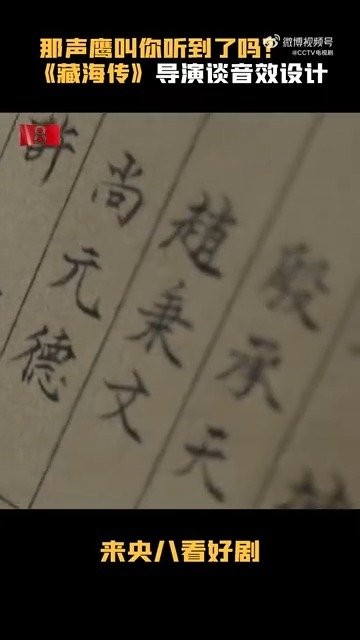 那声鹰叫你听到了吗？
微博视频号
@CCTV电视剧
《藏海传》导演谈音效设计
8
殷承天
趙秉文
尚元德
許
来央八看好剧